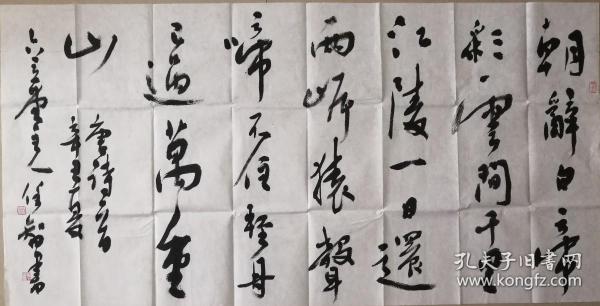 朝辞白帝
彩云間千里
江陵一日還
两岸猿聲
啼不住輕舟
已過萬重
山
唐詩一首
辛丑夏
主人任智書
孔夫子旧书网
www.kongfz.com